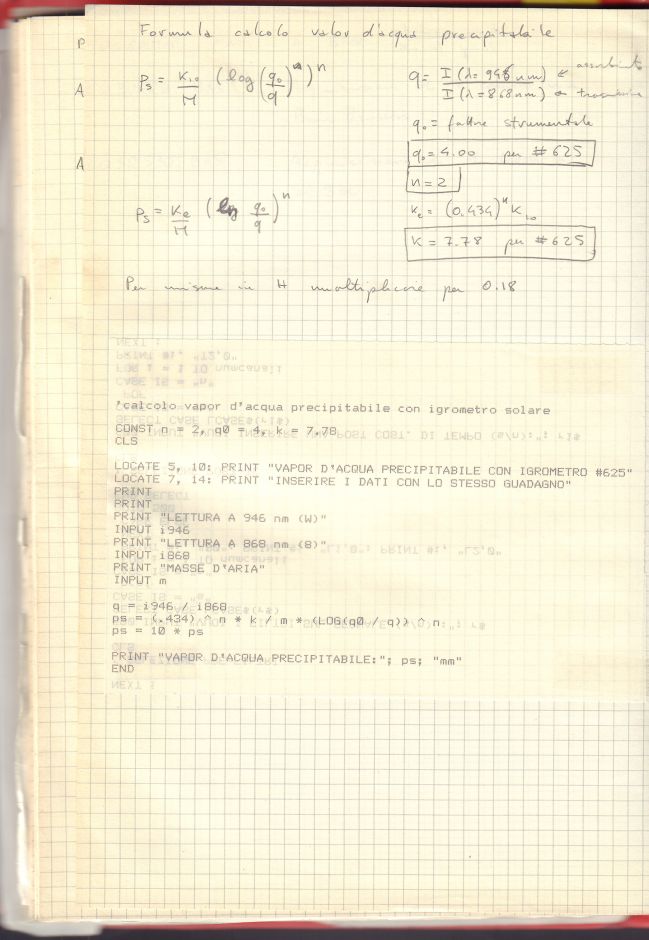 Formula calcolo valor d'acqua precipitabile
P
A
A
Ps = K10/M (log (q0/q))^n
q = I (λ = 946 nm) ← assorbimento
I (λ = 868 nm) ←
q0 = fattore strumentale
q0 = 4.00 per #625
n = 2
Ps = Ke/M (ln q0/q)^n
Ke = (0.434)^n K10
K = 7.78 per #625
Per misure in H moltiplicare per 0.18
'calcolo vapor d'acqua precipitabile con igrometro solare
CONST n = 2, q0 = 4, k = 7.78
CLS
LOCATE 5, 10: PRINT "VAPOR D'ACQUA PRECIPITABILE CON IGROMETRO #625"
LOCATE 7, 14: PRINT "INSERIRE I DATI CON LO STESSO GUADAGNO"
PRINT
PRINT
PRINT "LETTURA A 946 nm (W)"
INPUT i946
PRINT "LETTURA A 868 nm (B)"
INPUT i868
PRINT "MASSE D'ARIA"
INPUT m
q = i946 / i868
ps = (.434) ^ n * k / m * (LOG(q0 / q)) ^ n
ps = 10 * ps
PRINT "VAPOR D'ACQUA PRECIPITABILE:"; ps; "mm"
END